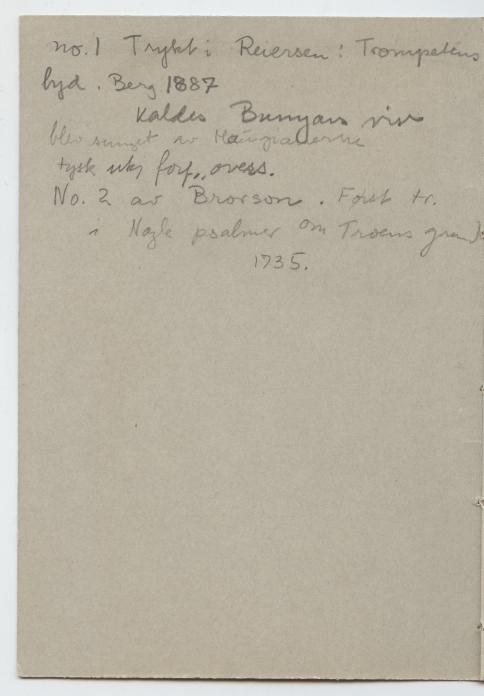 no. 1 Trykt i Reiersen: Trompetens
lyd. Berg 1887
Kaldes Bunyans vise
blev sunget av Haugianerne
tysk ukj forf., overs.
No. 2 av Brorson. Først tr.
i Nogle psalmer om Troens grund
1735.